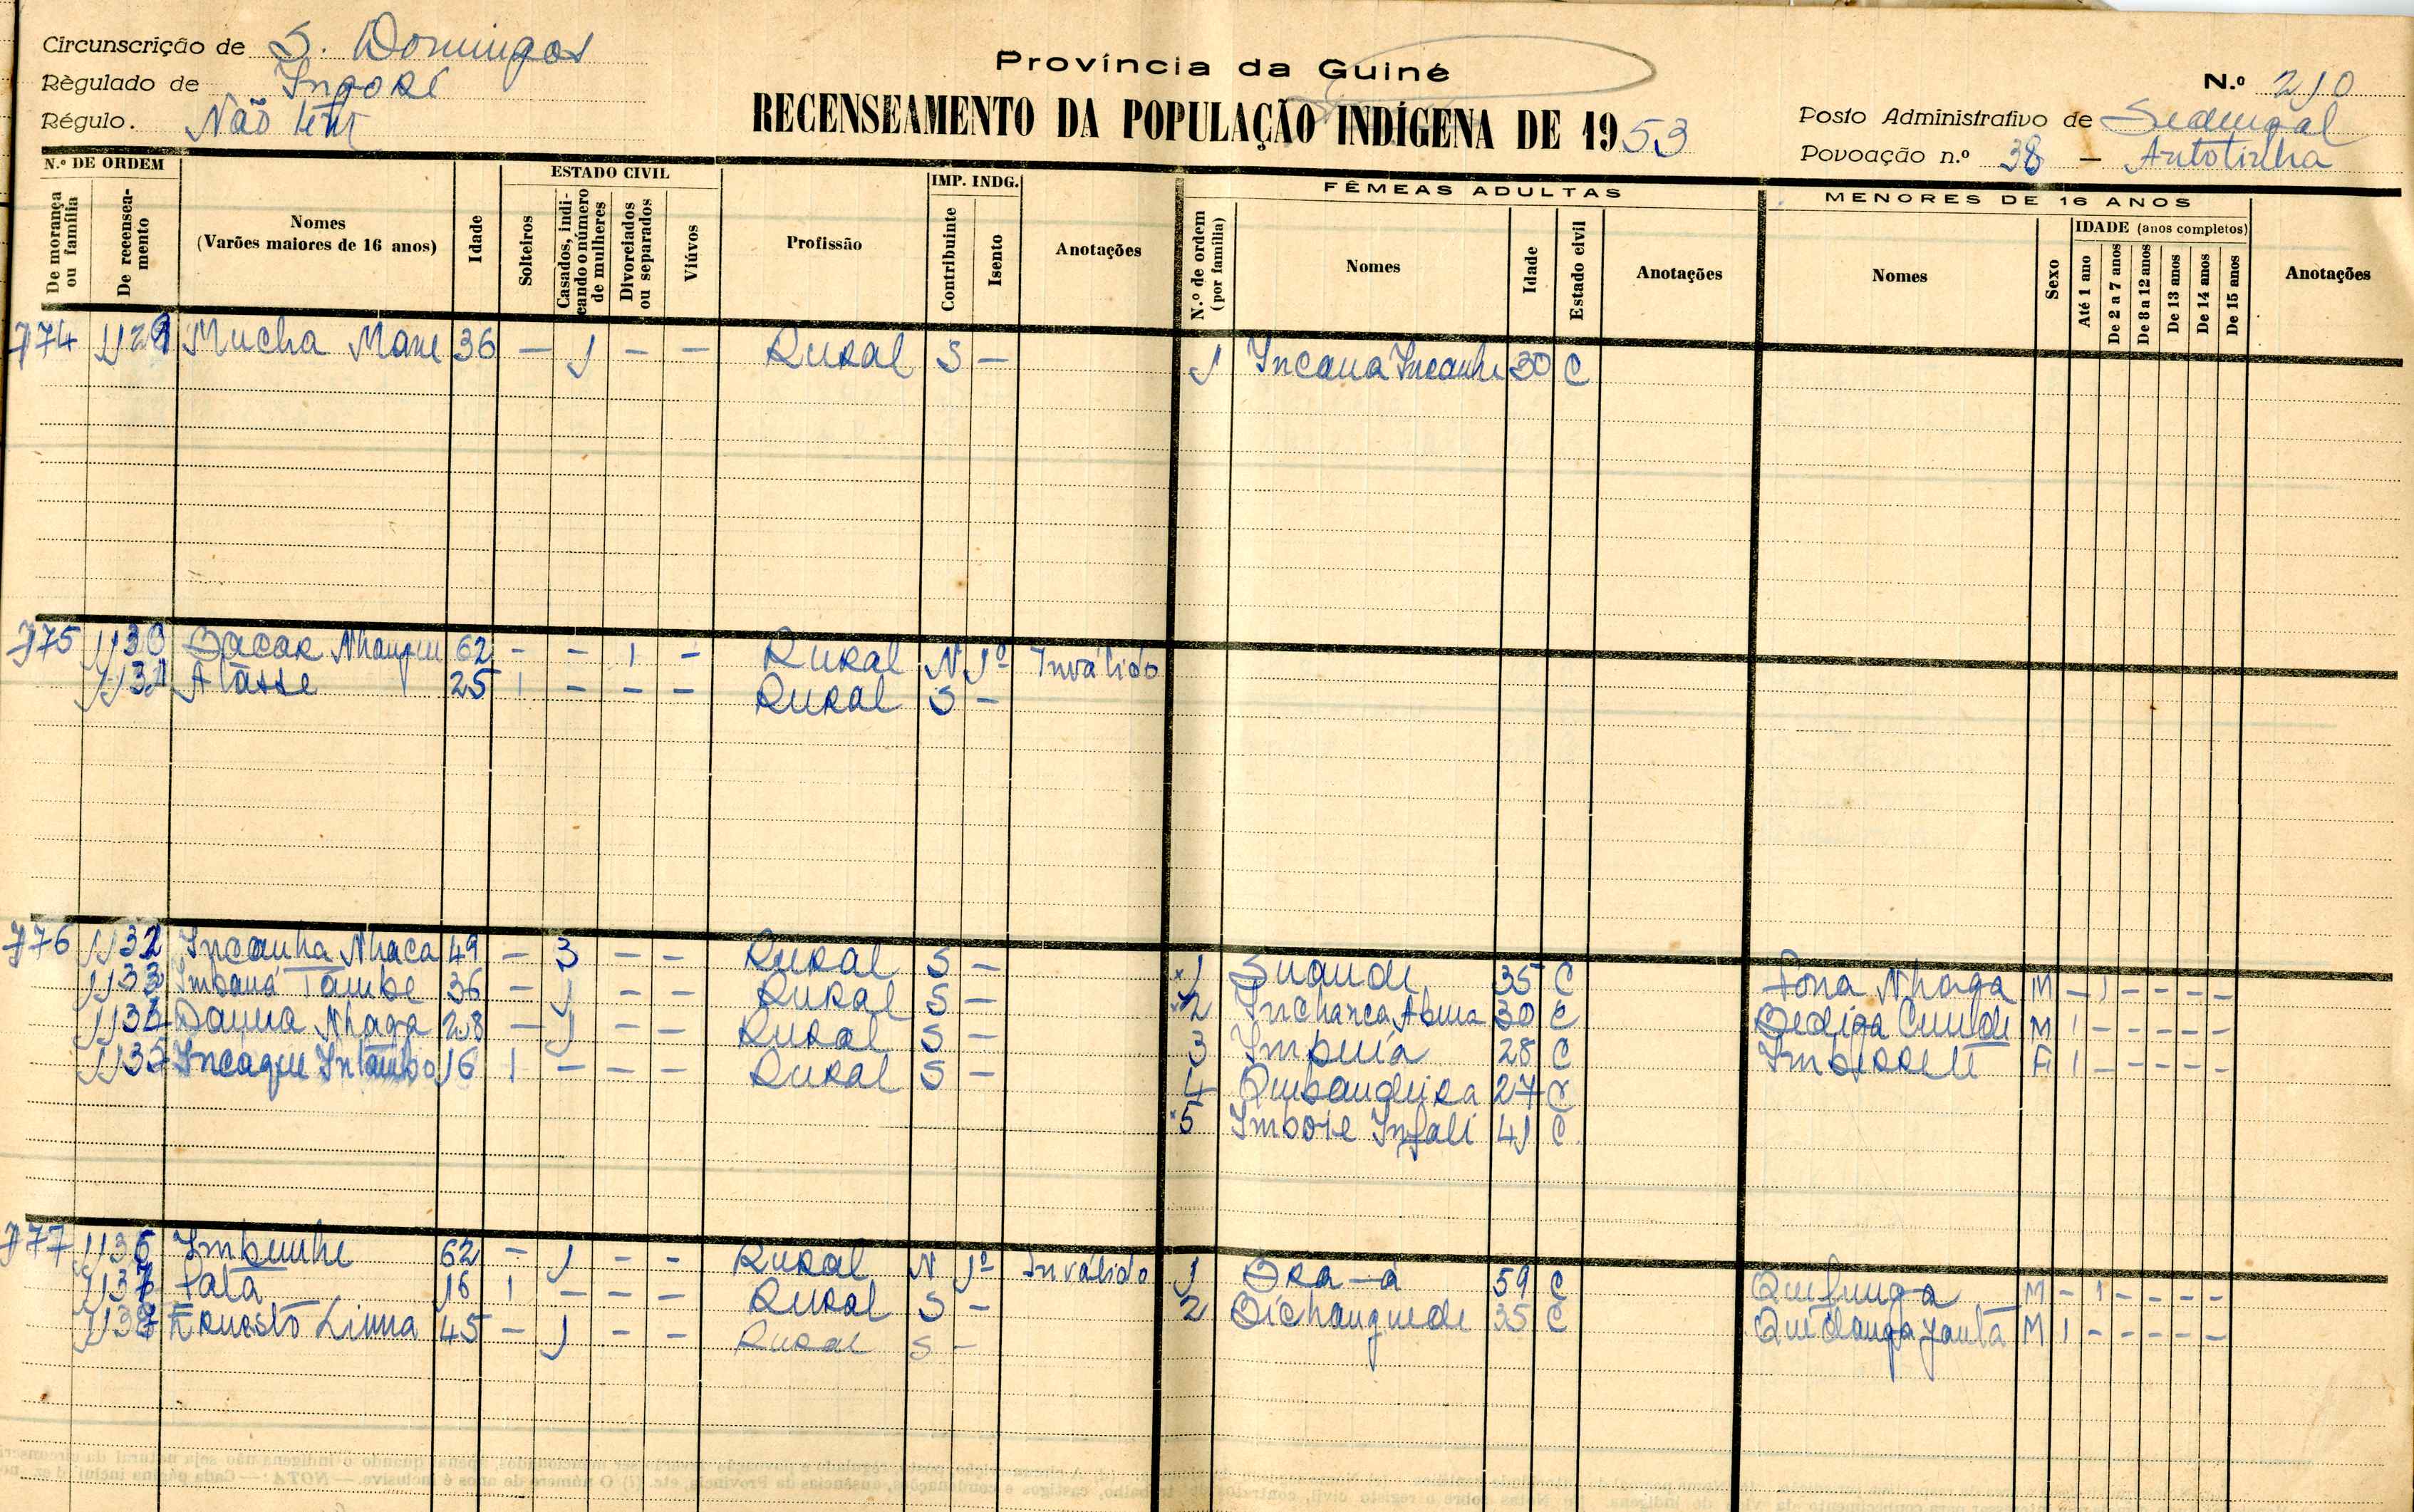 Circunscrição de S. Domingos
Règulado de Ingoré
Régulo. Não tem
Província da Guiné
RECENSEAMENTO DA POPULAÇÃO INDÍGENA DE 1953
N.º 210
Posto Administrativo de Sedengal
Povoação n.º 38 — Antotinha
N.º DE ORDEM
De morança ou família
De recenseamento
Nomes
(Varões maiores de 16 anos)
Idade
ESTADO CIVIL
Solteiros
Casados, indicando o número de mulheres
Divorciados ou separados
Viúvos
Profissão
IMP. INDG.
Contribuinte
Isento
Anotações
FÊMEAS ADULTAS
N.º de ordem (por família)
Nomes
Idade
Estado civil
Anotações
MENORES DE 16 ANOS
Nomes
Sexo
IDADE (anos completos)
Até 1 ano
De 2 a 7 anos
De 8 a 12 anos
De 13 anos
De 14 anos
De 15 anos
Anotações
774 1129 Mucha Mane 36 — 1 — — Rural S — 1 Incana Incanhe 30 C
775 1130 Bacar 62 - - 1 - Rural N 1º Inválido
1131 Atasse 25 1 - - - Rural S —
776 1132 Incanha Nhaca 49 — 3 — — Rural S — 1 Suandi 35 C Fona Nhaga M — 1 — — — —
1133 Imbana Tambe 36 — 1 — — Rural S — 2 Inchanca 30 C M 1 — — — — —
1134 Danna Nhaga 28 — 1 — — Rural S — 3 Impuia 28 C F 1 — — — — —
1135 Incaque Intambo 16 1 — — — Rural S — 4 Quibandeira 27 C
5 Imbote Infali 41 C
777 1136 Imbunhe 62 — 1 — — Rural N 1º Inválido 1 59 C Quifunga M — 1 — — — —
1137 Fata 16 1 — — — Rural S — 2 Dichanguedi 35 C M 1 — — — — —
1138 Ernesto Linna 45 — 1 — — Rural S —